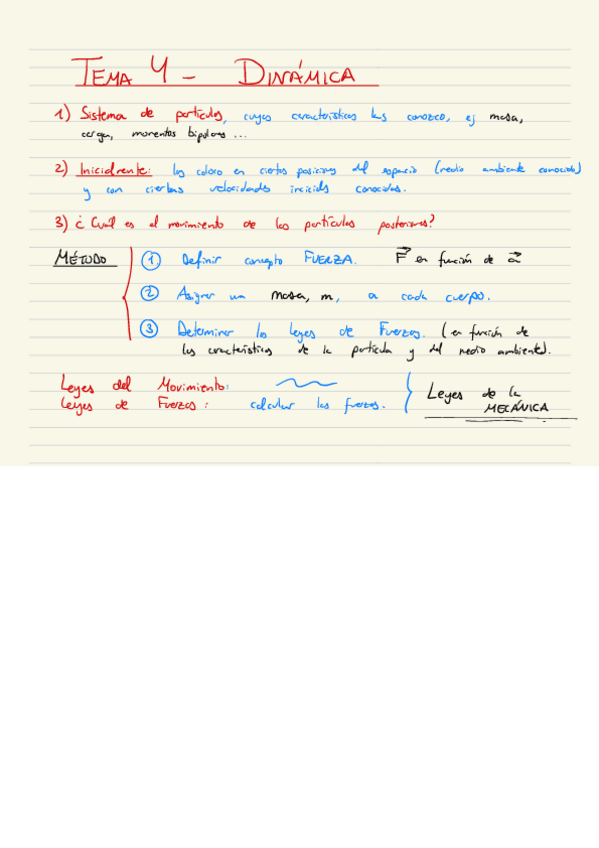 TEMA 4 - DINÁMICA
1) Sistema de partículas, cuyas características las conozco, ej masa,
carga, momentos bipolares ...
2) Inicialmente: las coloco en ciertas posiciones del espacio (medio ambiente conocido)
y con ciertas velocidades iniciales conocidas.
3) ¿Cuál es el movimiento de las partículas posteriores?
MÉTODO
1. Definir concepto FUERZA. F⃗ en función de a⃗
2 Asignar un masa, m, a cada cuerpo.
3 Determinar las leyes de Fuerzas. (en función de
las características de la partícula y del medio ambiente).
Leyes del Movimiento:
Leyes de Fuerzas: calcular las fuerzas.
Leyes de la
MECÁNICA